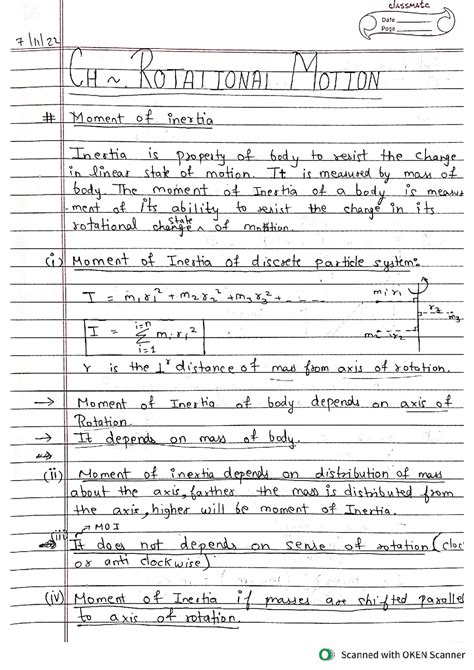 classmate
Date
Page
7/11/22
CH ~ ROTATIONAL MOTION
# Moment of inertia
Inertia is property of body to resist the change
in linear state of motion. It is measured by mass of
body. The moment of Inertia of a body is measur
-ment of its ability to resist the change in its
rotational change state ^ of motion.
(i) Moment of Inertia of discrete particle system:
I = m₁r₁² + m₂r₂² + m₃r₃² + - - - -
m₁ r₁
r₂
m₃
I = i=n Σ i=1 mᵢ rᵢ²
r is the ⊥ʳ distance of mass from axis of rotation.
→ Moment of Inertia of body depends on axis of
Rotation.
→ It depends on mass of body.
(ii) Moment of inertia depends on distribution of mass
about the axis, farther the mass is distributed from
the axis, higher will be moment of Inertia.
→ MOI
(iii) It does not depends on sense of rotation (cloc
or anti clockwise)
(iv) Moment of Inertia if masses are shifted parallel
to axis of rotation.
Scanned with OKEN Scanner